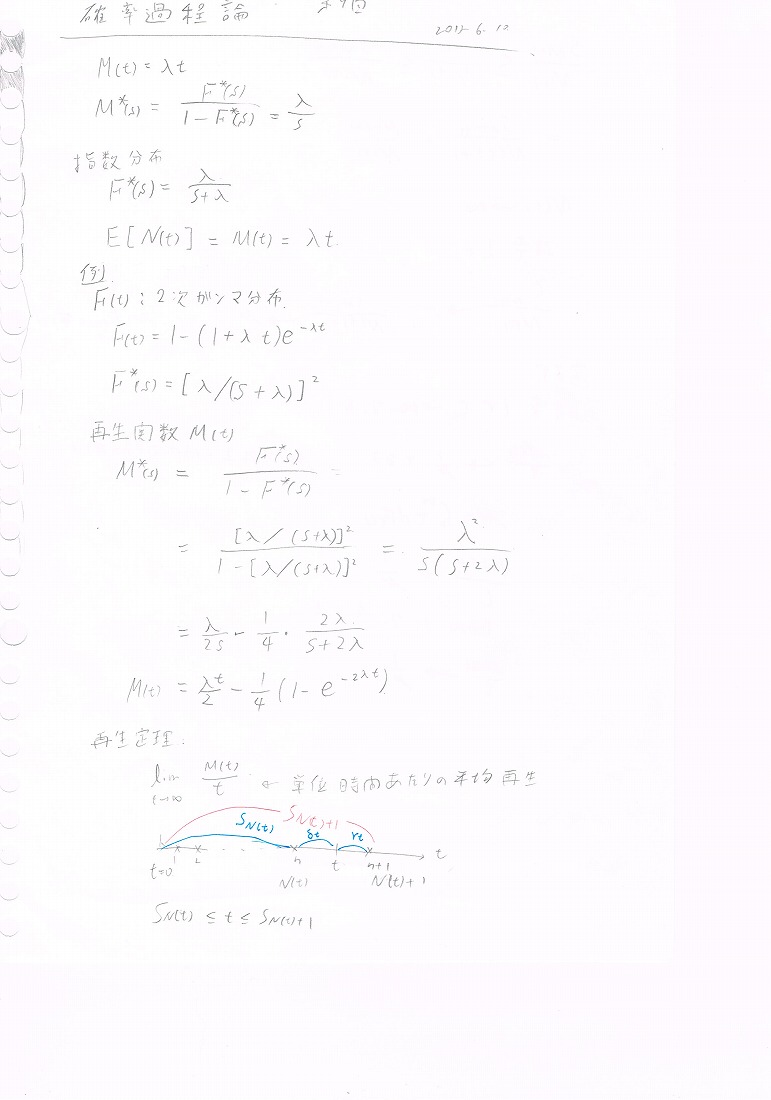 確率過程論
M(t) = λt
M*(s) = F*(s) / (1 − F*(s)) = λ/s
指数分布
F*(s) = λ/(s+λ)
E[N(t)] = M(t) = λt.
例.
F(t) : 2次ガンマ分布.
F(t) = 1 − (1 + λt)e^{−λt}
F*(s) = [λ/(s + λ)]^2
再生関数 M(t)
M*(s) = F*(s) / (1 − F*(s)) =
= [λ/(s+λ)]^2 / (1 − [λ/(s+λ)]^2) = λ^2 / (s(s+2λ))
= λ/2s − 1/4 · 2λ/(s+2λ)
M(t) = λt/2 − 1/4 (1 − e^{−2λt})
再生定理.
lim t→∞ M(t)/t ← 単位時間あたりの平均再生
S_{N(t)+1}
S_{N(t)} δt γt
t=0 1 2 n t n+1 t
N(t) N(t)+1
S_{N(t)} ≤ t ≤ S_{N(t)+1}